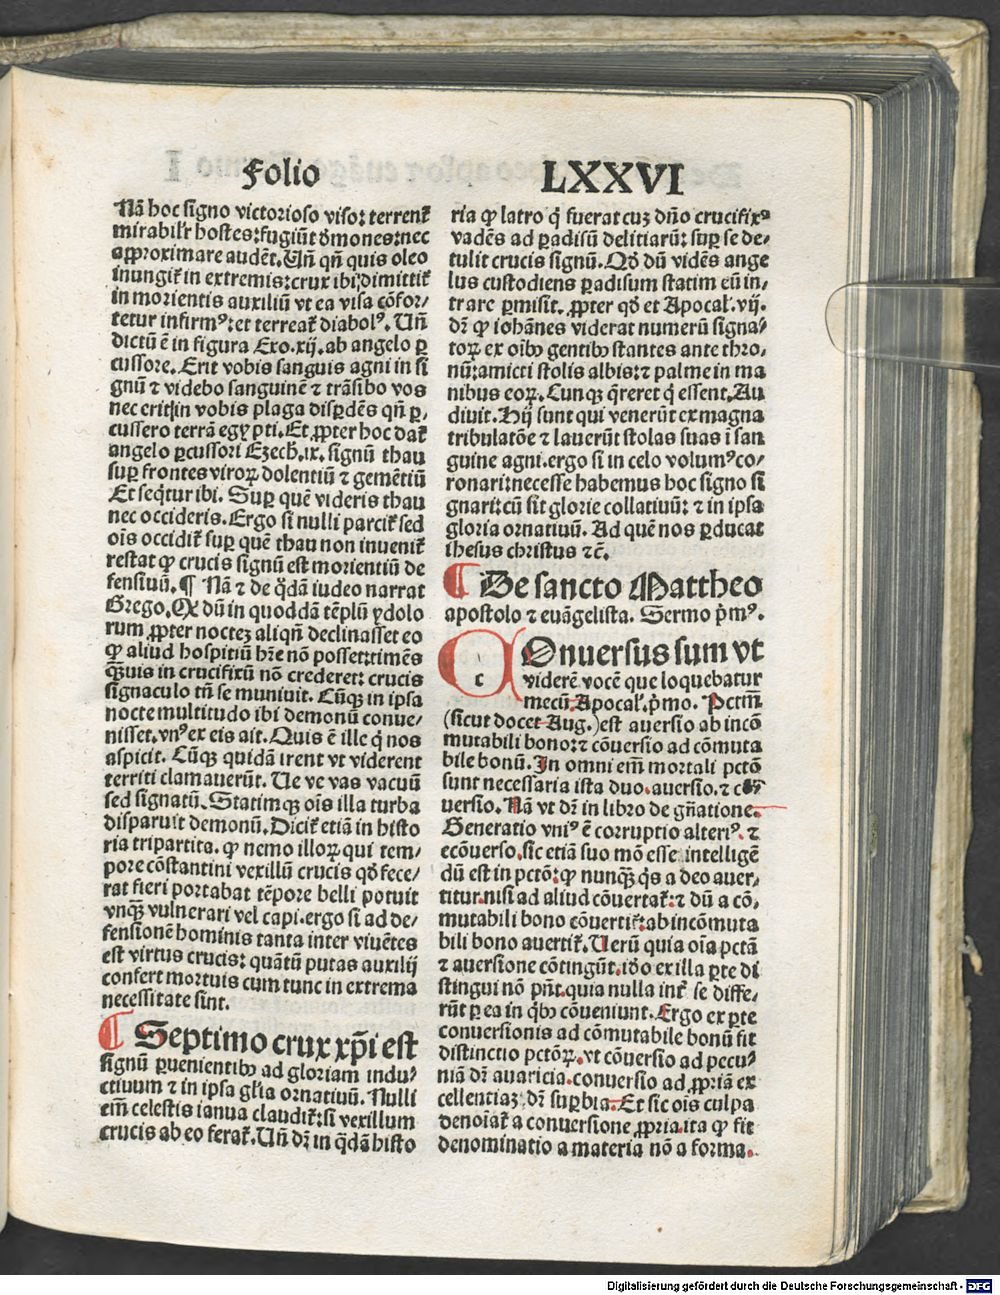 Folio LXXVI
Nā hoc signo victorioso viso: terrent᷑
mirabilr̄ hostes: fugiūt demones: nec
approximare audēt. Uñ qñ quis oleo
inungit᷑ in extremis: crux ibi dimittit᷑
in morientis auxiliū vt ea visa cōfor/
tetur infirmꝰ: et terreat᷑ diabolꝰ. Uñ
dictū ē in figura Exo. xij. ab angelo ꝑ
cussore. Erit vobis sanguis agni in si
gnū ⁊ videbo sanguinē ⁊ trāsibo vos
nec erit in vobis plaga disꝑdēs qñ ꝑ/
cussero terrā egypti. Et ꝓpter hoc dat᷑
angelo ꝑcussori Ezech. ix. signū thau
suꝑ frontes viroꝝ dolentiū ⁊ gemētiū
Et seq̄tur ibi. Suꝑ quē videris thau
nec occideris. Ergo si nulli parcit᷑ sed
oīs occidit᷑ suꝑ quē thau non inuenit᷑
restat ꝙ crucis signū est morientiū de
fensiuū. ¶ Nā ⁊ de q̄dā iudeo narrat
Grego. Qꝫ dū in quoddā tēplū ydolo
rum ꝓpter noctez aliqñ declinasset eo
ꝙ aliud hospitiū hr̄e nō posset: timēs
q̄ꝫuis in crucifixū nō crederet: crucis
signaculo tñ se muniuit. Cūqꝫ in ipsa
nocte multitudo ibi demonū conue/
nisset. vnꝰ ex eis ait. Quis ē ille q̇ nos
aspicit. Cūqꝫ quidā irent vt viderent
territi clamauerūt. Ue ve vas vacuū
sed signatū. Statimqꝫ oīs illa turba
disparuit demonū. Dicit᷑ etiā in histo
ria tripartita. ꝙ nemo illoꝝ qui tem/
pore cōstantini vexillū crucis qd̓ fece/
rat fieri portabat tēpore belli potuit
vnq̄ꝫ vulnerari vel capi. ergo si ad de/
fensionē hominis tanta inter viuētes
est virtus crucis: quātū putas auxilij
confert mortuis cum tunc in extrema
necessitate sint.
¶ Septimo crux xp̄i est
signū ꝑuenientibꝫ ad gloriam indu/
ctiuum ⁊ in ipsa gl̄ia ornatiuū. Nulli
em̄ celestis ianua claudit᷑: si vexillum
crucis ab eo ferat᷑. Uñ dr̄ in q̄dā histo
ria ꝙ latro q̇ fuerat cuz dño crucifixꝰ
vadēs ad ꝑadisū delitiarū: suꝑ se de/
tulit crucis signū. Qd̓ dū vidēs ange
lus custodiens ꝑadisum statim eū in/
trare ꝑmisit. ꝓpter qd̓ et Apocal̓. vij.
dr̄ ꝙ iohānes viderat numerū signa/
toꝝ ex oībꝫ gentibꝫ stantes ante thro/
nū: amicti stolis albis: ⁊ palme in ma
nibus eoꝝ. Cunqꝫ q̄reret q̇ essent. Au
diuit. Hij sunt qui venerūt ex magna
tribulatōe ⁊ lauerūt stolas suas i san
guine agni. ergo si in celo volumꝰ co/
ronari: necesse habemus hoc signo si
gnari: cū sit glorie collatiuū: ⁊ in ipsa
gloria ornatiuū. Ad quē nos ꝑducat
ihesus christus ⁊c̄.
¶ De sancto Mattheo
apostolo ⁊ euāgelista. Sermo p̄mꝰ.
COnuersus sum vt
viderē vocē que loquebatur
mecū. Apocal̓. p̄mo. Pctm̄
(sicut docet Aug.) est auersio ab incō
mutabili bono: ⁊ cōuersio ad cōmuta
bile bonū. In omni em̄ mortali pctō
sunt necessaria ista duo. auersio. ⁊ cō
uersio. Nā vt dr̄ in libro de gñatione.
Generatio vniꝰ ē corruptio alteriꝰ. ⁊
ecōuerso. sic etiā suo mō esse intelligē
dū est in pctō: ꝙ nunq̄ꝫ q̇s a deo auer/
titur. nisi ad aliud cōuertat᷑: ⁊ dū a cō/
mutabili bono cōuertit᷑: ab incōmuta
bili bono auertit᷑. Uerū quia oīa pctā
⁊ auersione cōtingūt. iḋo ex illa ꝑte di
stingui nō pn̄t. quia nulla int᷑ se diffe/
rūt ꝑ ea in q̇bꝫ cōueniunt. Ergo ex ꝑte
conuersionis ad cōmutabile bonū fit
distinctio pctōꝝ. vt cōuersio ad pecu/
niā dr̄ auaricia. conuersio ad ꝓpriā ex
cellentiaz dr̄ suꝑbia. Et sic oīs culpa
denoīat᷑ a conuersione ꝓpria. ita ꝙ fit
denominatio a materia nō a forma.
Digitalisierung gefördert durch die Deutsche Forschungsgemeinschaft - DFG